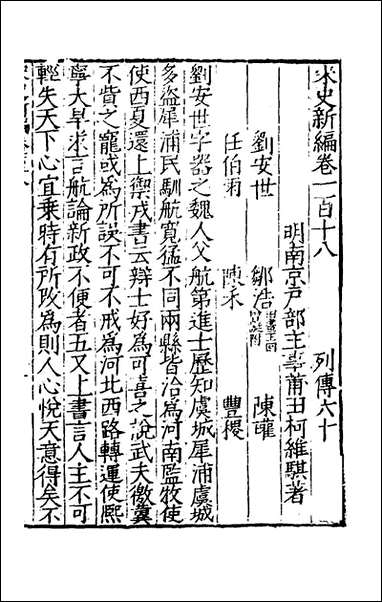 宋史新編卷一百十八 列傳六十
明南京戸部主事莆田柯維騏著
劉安世 鄒浩 陳瓘
任伯雨 陳禾 豐稷
劉安世字器之魏人父航第進士歷知虞城犀浦虞城
多盜犀浦民馴航寬猛不同兩縣皆治為河南監牧使
使西夏還上禦戎書云辯士好為可喜之說武夫徼冀
不貲之寵或為所誤不可不戒為河北西路轉運使熙
寧大旱求言航論新政不便者五又上書言人主不可
輕失天下心宜乘時有所改為則人心悅天意得矣不